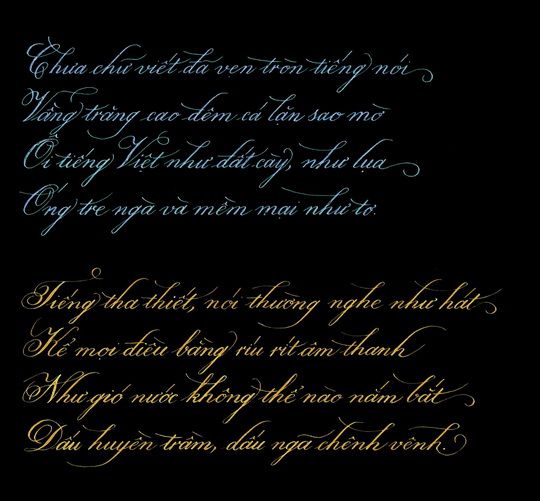 Chưa chữ viết đã vẹn tròn tiếng nói
Vầng trăng cao đêm cá lặn sao mờ
Ôi tiếng Việt như đất cày, như lụa
Óng tre ngà và mềm mại như tơ.
Tiếng tha thiết, nói thường nghe như hát
Kể mọi điều bằng ríu rít âm thanh
Như gió nước không thể nào nắm bắt
Dấu huyền trầm, dấu ngã chênh vênh.